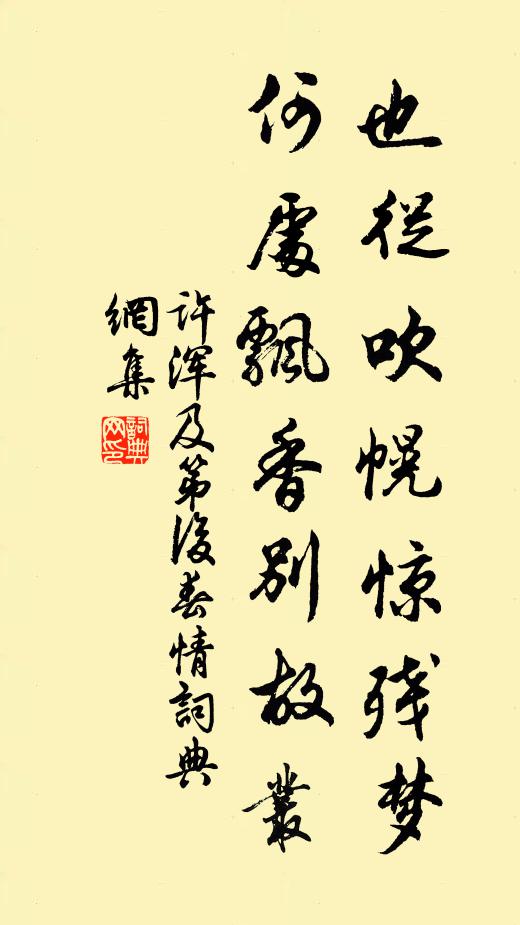 也從吹幌惊残梦
何處飄香別故叢
许渾及第後春情詞典
網集
詞典
网印